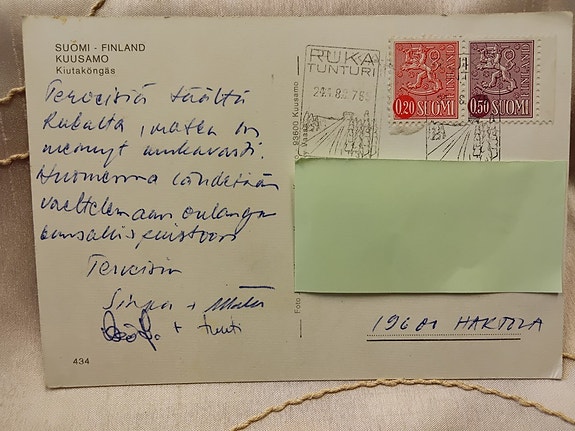 SUOMI - FINLAND
KUUSAMO
Kiutaköngäs
Terveisiä täältä
Rukalta, matka on
mennyt mukavasti.
Huomenna lähdetään
vaeltelemaan oulangan
kansallispuistoon
Terveisin
Sirpa +
+
434
RUKA
TUNTURI
93600 Kuusamo
0,20 SUOMI
FINLAND
0,50 SUOMI
FINLAND
Foto
19601 HARTOLA